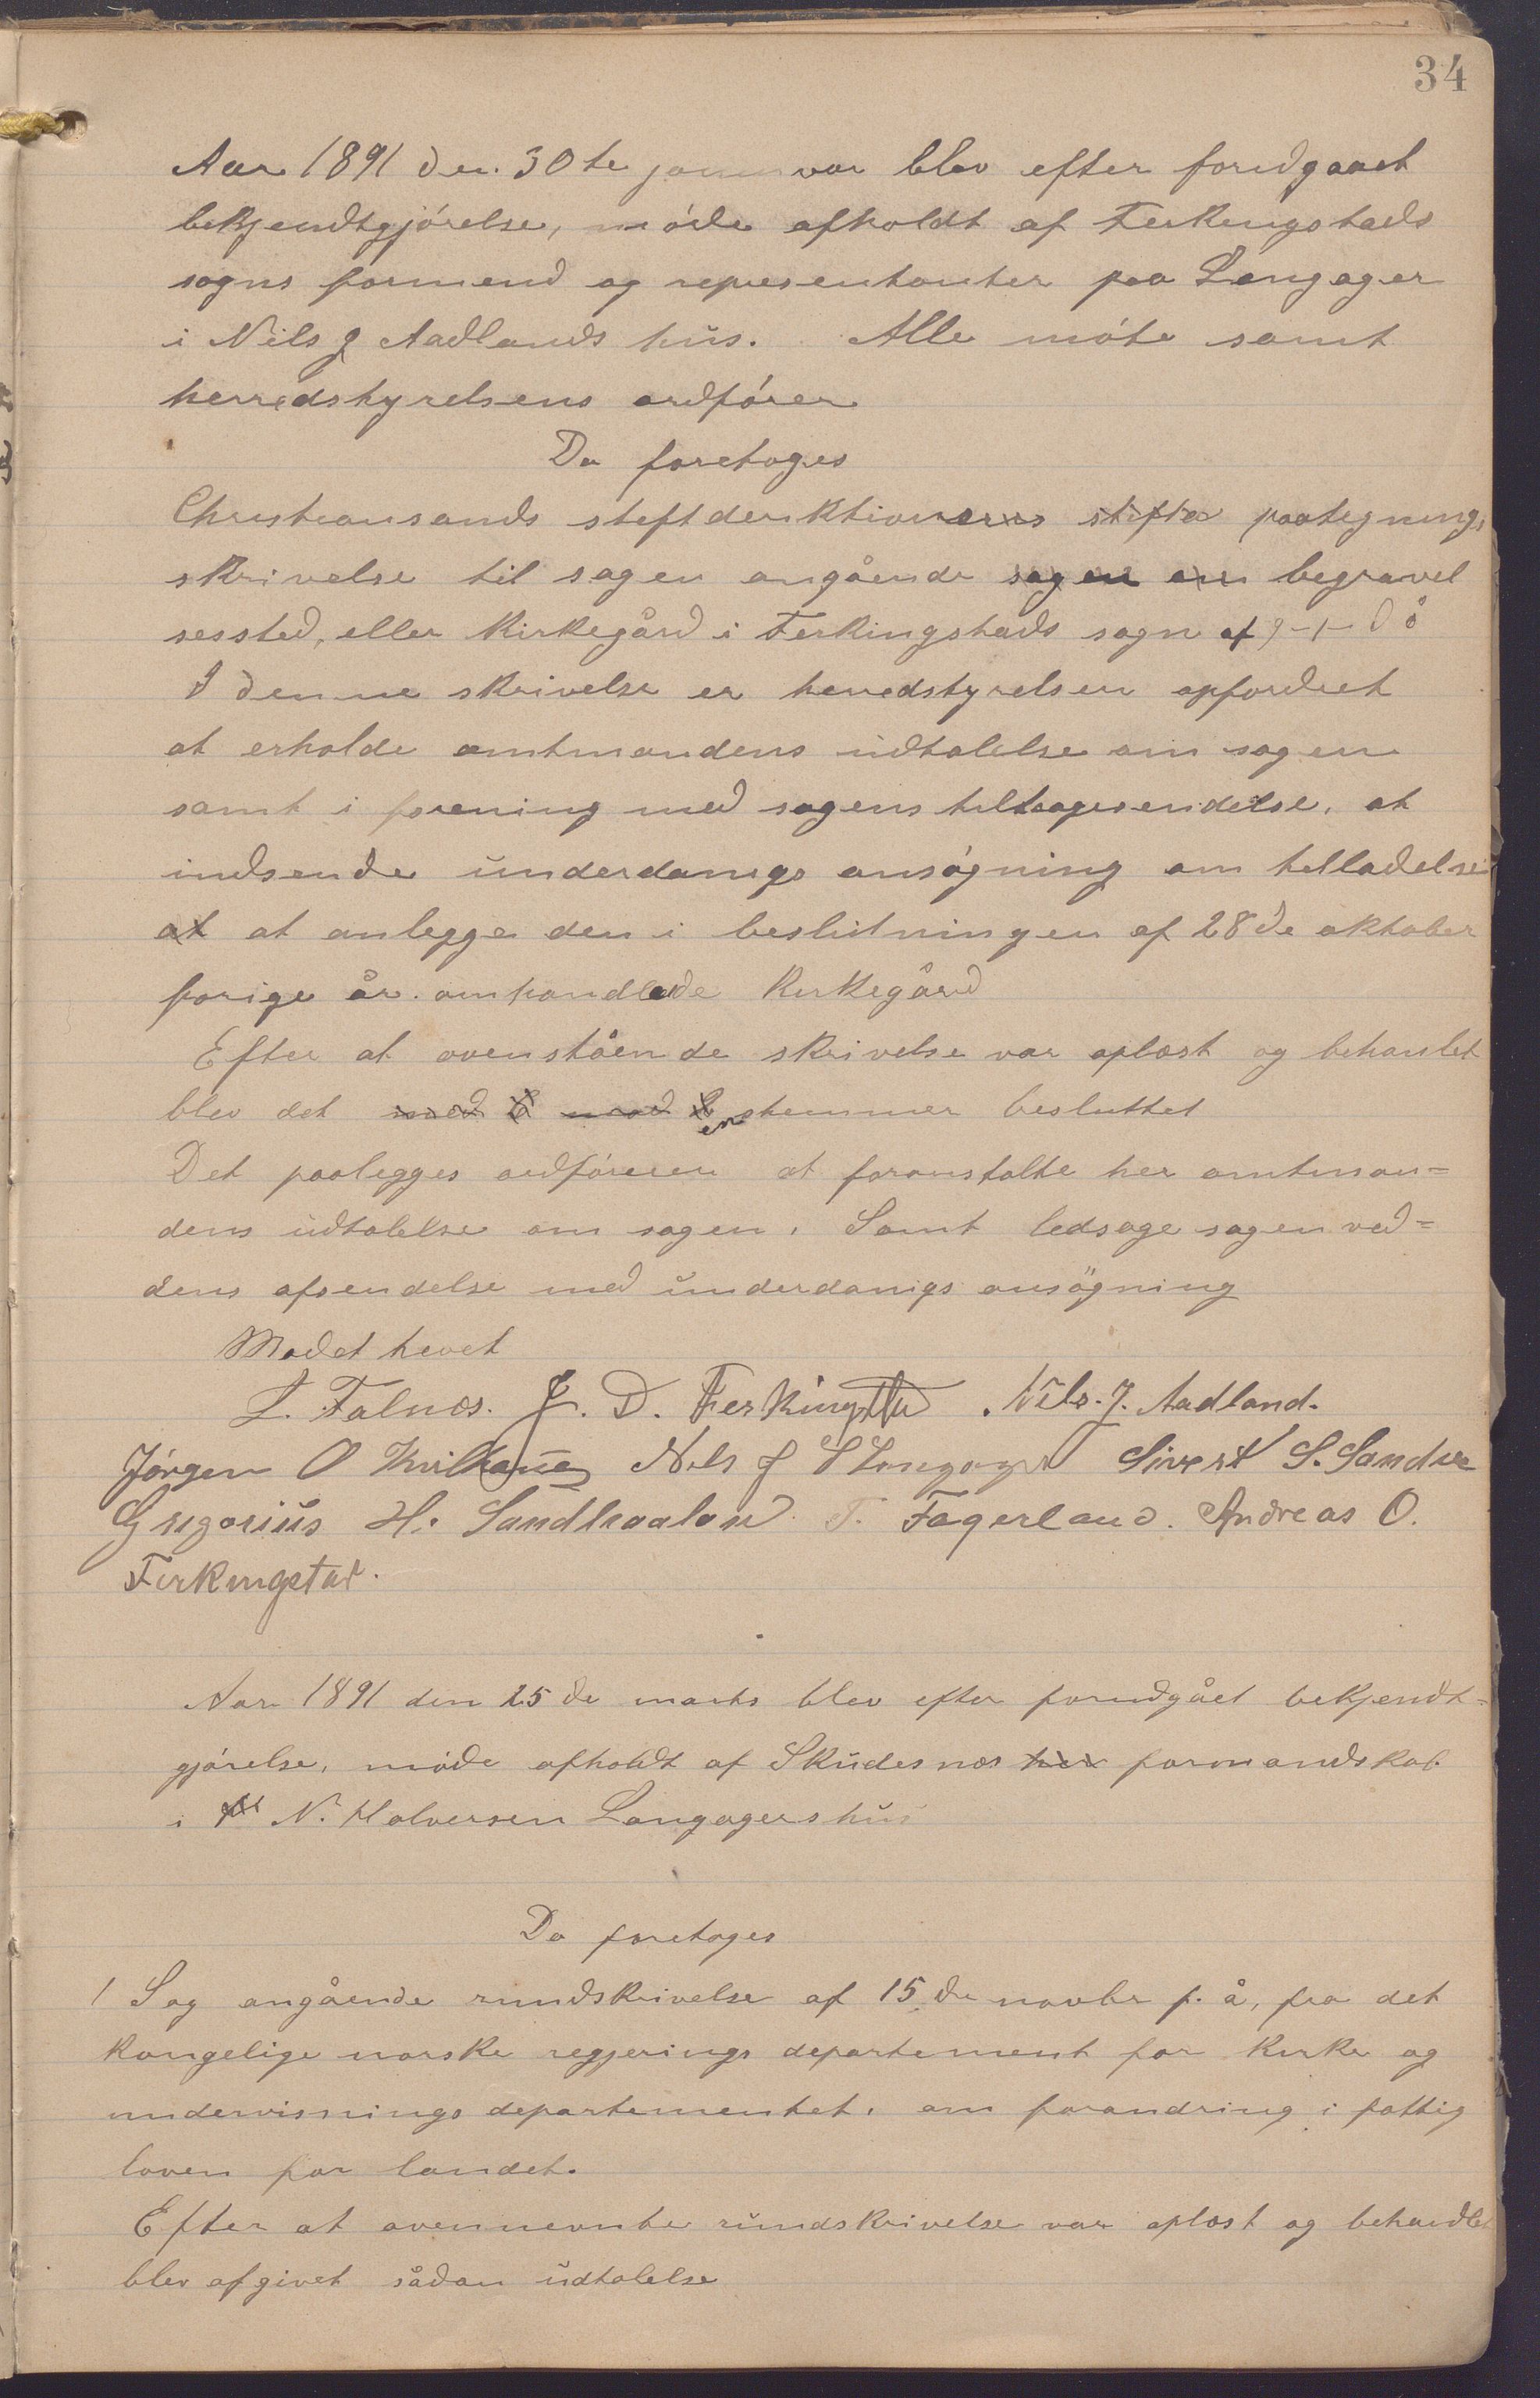 34
Aar 1891 den 30te januvar blev efter forudgaaet
bekjendtgjórelse, móde afholdt af Ferkingstads
sogns formend og representanter paa Langager
i Nils J Aadlands hus. Alle móte samt
herredstyrelsens ordfórer
Da foretages
Christiansands stiftderiktioners stifts paategnings
skrivelse til sagen angående sagen om begravel
sessted, eller Kirkegård i Ferkingstads sogn af 9-1- d å
I denne skrivelse er herredstyrelsen opfordret
at erholde amtmandens udtalelse om sagen
samt i forening med sagens tilbagesendelse, at
indsende underdanigs ansógning om telladelse
at at anlegge den i beslutningen af 28de oktober
forige år omhandlede Kirkegård
Efter at ovenstående skrivelse var oplæst og behanlet
blev det med mod enstemmer besluttet
Det paalegges ordfóreren at foranstalte her amtman=
dens udtalelse om sagen, Samt ledsage sagen ved=
dens afsendelse med underdanigs ansögning
Modet hevet
L. Falnæs. J. D. Ferkingsta Nils. J. Aadland.
Jórgen O Kvilhaug Nils J S Langager Sivert S. Sandve
Gregorius H. Sandhaaland T. Fagerland. Andreas O.
Ferkingstad.
Aar 1891 den 25de marts blev efter forudgået bekjendt=
gjórelse, móde afholdt af Skudesnæs her formandskab
i N. Halversen Langagers hus
Da foretages
1 Sag angående rundskrivelse af 15de novbr f. å, fra det
kongelige norske regjerings departement for Kirke og
undervisnings departementet, om forandring i fattig
loven for landet.
Efter at ovennevnte rundskrivelse var oplæst og behandlet
blev afgivet sådan udtalelse